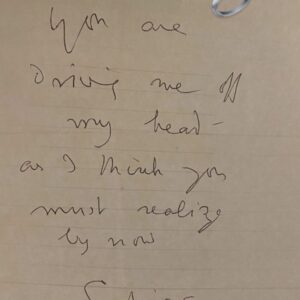 You are
Driving me off
my head –
as I think you
must realize
by now